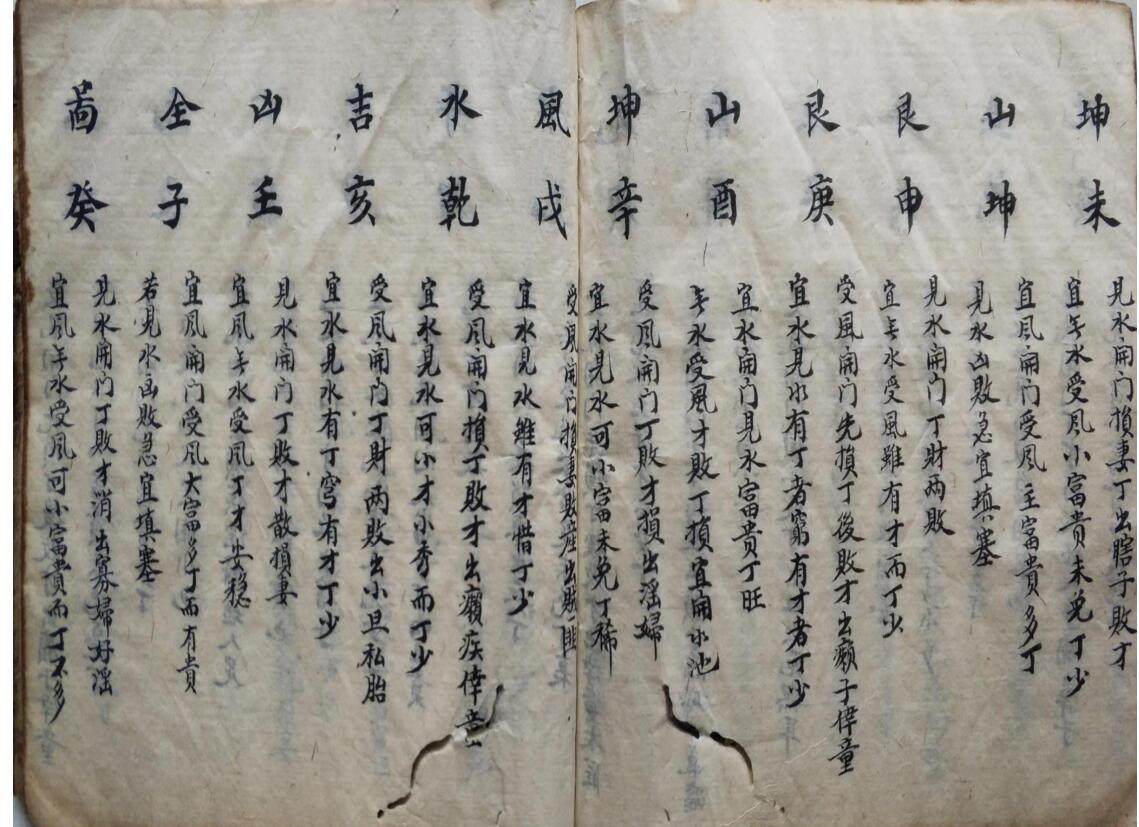 坤未
見水開门損妻丁出瞎子敗才
宜无水受风小富貴未免丁少
山坤
宜风開门受风主富貴多丁
見水凶敗急宜填塞
艮申
見水開门丁財两敗
宜无水受風雖有才而丁少
艮庚
受風開门先損丁後敗才出癞子俥童
宜水見水有丁者窮有才者丁少
山酉
宜水開门見水富貴丁旺
无水受風才敗丁損宜開水池
坤辛
受風開门丁敗才損出滛婦
宜水見水可小富未免丁稀
風戌
受風開门損妻敗産出賊匪
宜水見水雖有才惜丁少
水乾
受风開门損丁敗才出癩疾俥童
宜水見水可小才小秀而丁少
吉亥
受风開门丁財两敗出小旦私胎
宜水見水有丁窮有才丁少
凶壬
見水開门丁敗才散損妻
宜风无水受风丁才安穏
全子
宜风開门受风大富多丁而有貴
若見水凶敗急宜填塞
啚癸
見水開门丁敗才消出寡婦好滛
宜风无水受风可小富貴而丁不多